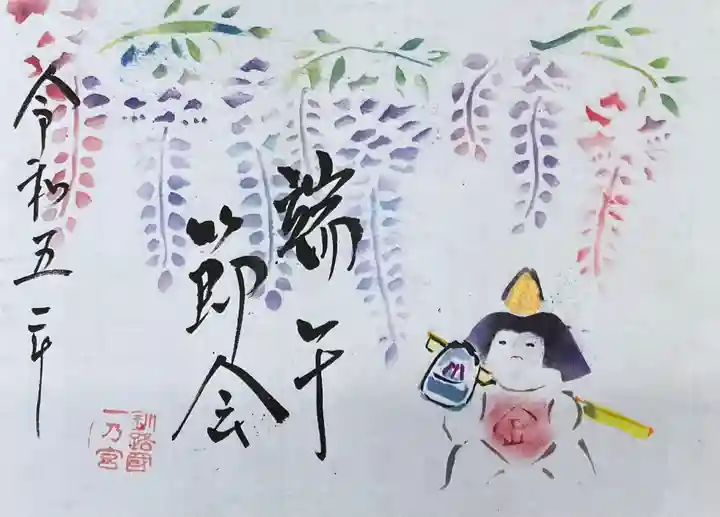 端午
節会
令和五年
釧路國
一乃宮
金